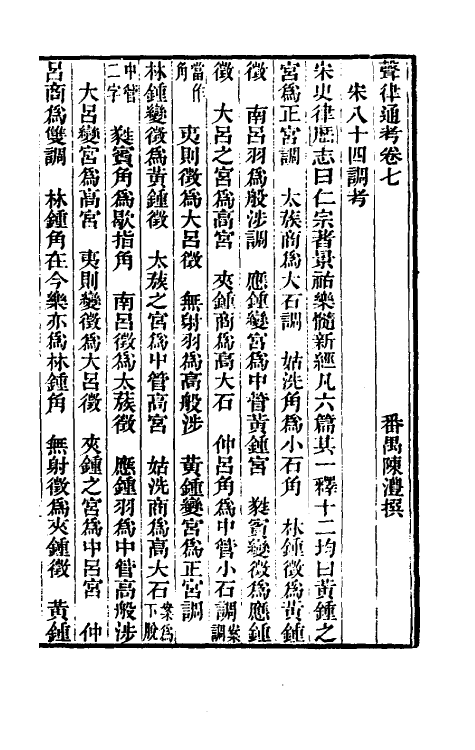 聲律通考卷七
番禺陳澧撰
宋八十四調考
宋史律歷志曰仁宗著景祐樂髓新經凡六篇其一釋十二均曰黃鍾之
宮爲正宮調　太蔟商爲大石調　姑洗角爲小石角　林鍾徵爲黃鍾
徵　南呂羽爲般涉調　應鍾變宮爲中管黃鍾宮　蕤賓變徵爲應鍾
徵　大呂之宮爲高宮　夾鍾商爲高大石　仲呂角爲中管小石調案調
當作角　夷則徵爲大呂徵　無射羽爲高般涉　黃鍾變宮爲正宮調
林鍾變徵爲黃鍾徵　太蔟之宮爲中管高宮　姑洗商爲高大石案爲下脫
中管二字　蕤賓角爲歇指角　南呂徵爲太蔟徵　應鍾羽爲中管高般涉
大呂變宮爲高宮　夷則變徵爲大呂徵　夾鍾之宮爲中呂宮　仲
呂商爲雙調　林鍾角在今樂亦爲林鍾角　無射徵爲夾鍾徵　黃鍾